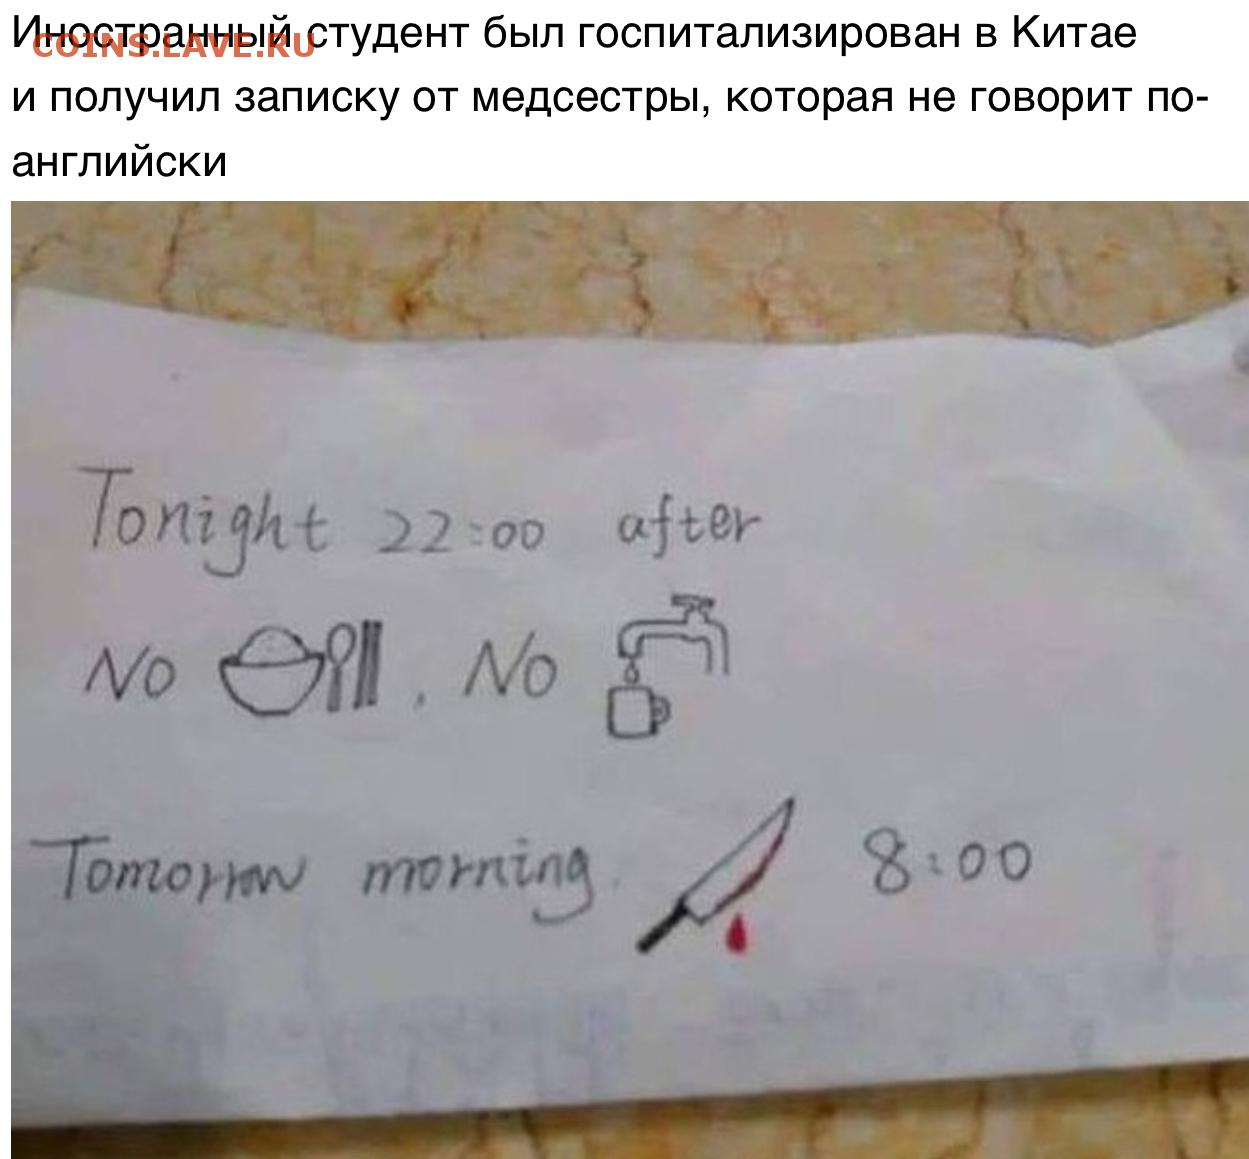 Иностранный студент был госпитализирован в Китае
COINS.LAVE.RU
и получил записку от медсестры, которая не говорит по-
английски
Tonight 22:00 after
No , No
Tomorrow morning. 8:00